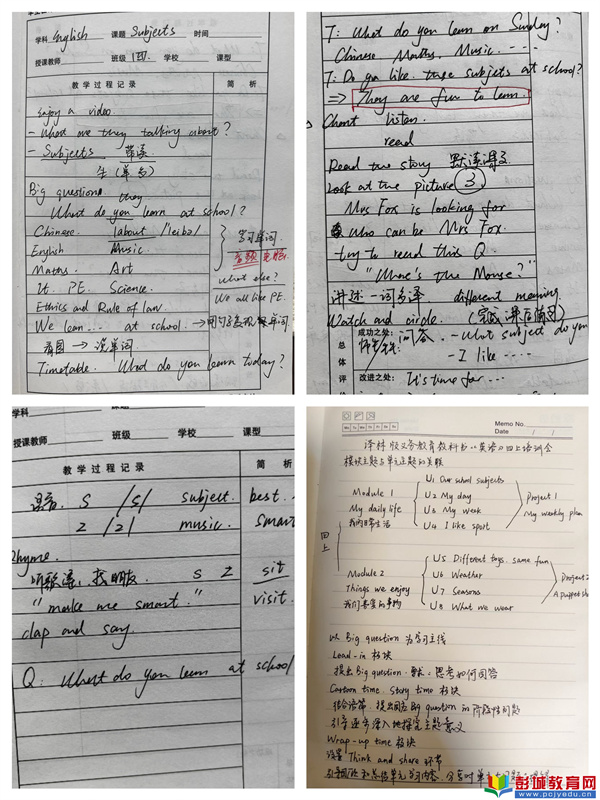 学科 English 课题 Subjects 时间
授课教师 班级 学校 课型
教 学 过 程 记 录 简 析
enjoy a video
- What are they talking about?
- Subjects
Big question
they
What do you learn at school?
Chinese labour /leibə/ 学习单词
English Music. 音频
Maths. Art what else?
It. PE. Science. We all like PE.
Ethics and Rule of law.
We learn... at school. →
看图 → 说单词
Timetable. What do you learn today?
T: What do you learn on Sunday?
Chinese Maths. Music. ----
T: Do you like these subjects at school?
=> They are fun to learn.
Chant listen.
read
Read the story
Look at the picture 3
Mrs Fox is looking for
who can be Mrs Fox.
try to read this Q.
"Where's the Mouse?"
讲述 一词多译 different meaning
Watch and circle.
总体评价
成功之处: 问答. - What subject do you
- I like ----
改进之处: It's time for ---
学科 课题
授课教师 班级 学校 课型
教 学 过 程 记 录 简 析
S /s/ subject. best.
z /z/ music. smart
Rhyme.
听歌谣, 找朋友. s z sit
"make me smart." visit.
clap and say.
Q: What do you learn at school
Memo No.
Mo Tu We Th Fr Sa Su Date / /
译林版义务教育教科书《英语》四上培训会
模块主题与单元主题的关联
四上
Module 1
My daily life
我的日常生活
U1 Our school subjects
U2 My day
U3 My week
U4 I like sport
Project 1
My weekly plan
Module 2
Things we enjoy
我们喜爱的事物
U5 Different toys, same fun
U6 Weather
U7 Seasons
U8 What we wear
Project 2
A puppet sho
以 Big question 为学习主线
Lead-in 板块
提出 Big question. 思考如何回答
Cartoon time. Story time 板块
结合语篇. 提出回应 Big question in 阶段性问题
引导逐步深入地探究主题意义
Wrap-up time 板块
设置 Think and share 环节
彭城教育网
www.pcjyedu.cn